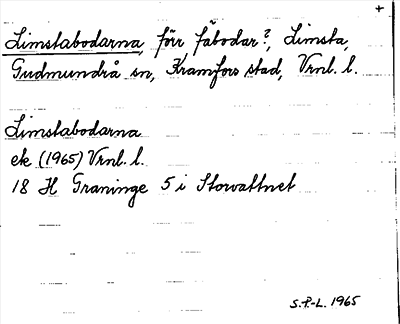 +
Limstabodarna, förr fäbodar?, Limsta,
Gudmundrå sn, Kramfors stad, Vrnl. l.
Limstabodarna
ek (1965) Vrnl. l.
18 H Graninge 5 i Storvattnet
S.P.-L. 1965